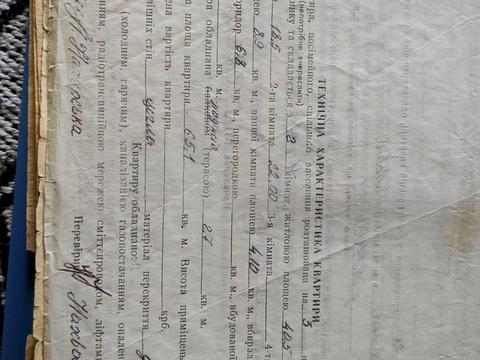 ТЕХНІЧНА ХАРАКТЕРИСТИКА КВАРТИРИ
ира, посімейного, спільного заселення розташована на 3
(непотрібне викреслити)
нку та складається з 2 кімнат, житловою площею 40,5
18.5 2-га кімната 22,00 3-я кімната 4-
щею 8,9 кв. м., ванної кімнати площею 4,10 кв. м., вбирал
ридор 6,8 кв. м., перегородкою кв. м., вбудованої
кв. м.
ра обладнана лоджія балконом (терасою) 2,7 кв. м.
а площа квартири 65,1 кв. м. Висота приміщень
ена вартість квартири крб.
Квартиру обладнано:
внішніх стін цегла матеріал перекриття
(холодним, гарячим), каналізацією газопостачанням, опален
нням, радіотрансляційною мережею сміттєпроводом, ліфтами
Перевірив